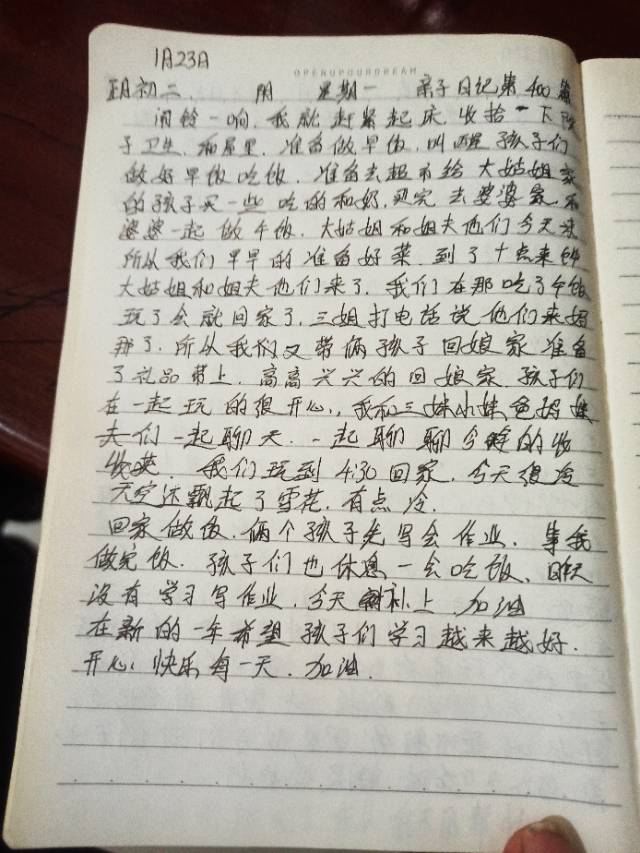 1月23日
OPENUPOURDREAM
正月初二 阴 星期一 亲子日记第400篇
闹铃一响,我就赶紧起床,收拾一下院
子卫生,和屋里,准备做早饭,叫醒孩子们
做好早饭吃饭,准备去超市给大姑姐家
的孩子买一些吃的和奶,买完去婆婆家,和
婆婆一起做午饭,大姑姐和姐夫他们今天来
所以我们早早的准备好菜,到了十点来钟
大姑姐和姐夫他们来了,我们在那吃了午饭
玩了会就回家了,三姐打电话说他们来妈
那了,所以我们又带俩孩子回娘家,准备
了礼品带上,高高兴兴的回娘家,孩子们
在一起玩的很开心,我和三妹小妹爸妈妹
夫们一起聊天,一起聊聊今年的收
获 我们玩到4:30回家,今天很冷
天空还飘起了雪花,有点冷.
回家做饭,俩个孩子先写会作业,等我
做完饭,孩子们也休息一会吃饭,昨天
没有学习写作业,今天补上 加油
在新的一年希望孩子们学习越来越好.
开心,快乐每一天,加油.